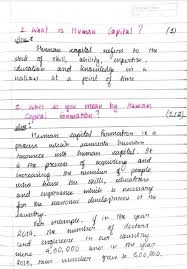 1. What is Human Capital ? (1)
Ans:
Human capital refers to the
stock of skill, ability, expertise,
education and knowledge in a
nation at a point of time
2. What do you mean by Human
Capital formation ? (212)
Ans:
Human capital formation is a
process which converts human
resource into human capital. It
is the process of acquiring and
increasing the number of people
who have the skills, education
and experience which is necessary
for the economic development of the
country.
For example, if in the year
2015, the number of doctors
and engineers in our country
were 4,00,000 and in the year
2016, their number grew to 5,00,000